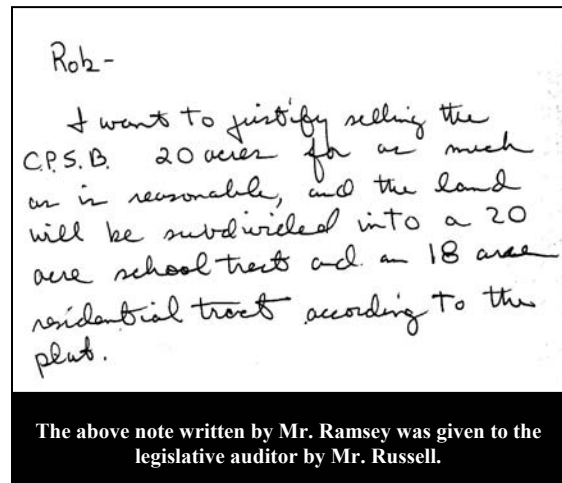 Rob-
I want to justify selling the
C.P.S.B. 20 acres for as much
as is reasonable, and the land
will be subdivided into a 20
acre school tract and an 18 acre
residential tract according to the
plat.
The above note written by Mr. Ramsey was given to the
legislative auditor by Mr. Russell.